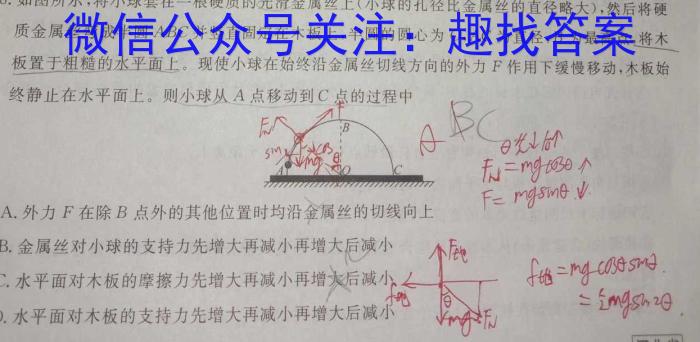 如图所示,将小球套在一根硬质的光滑金属丝上(小球的孔径比金属丝的直径略大),然后将硬
质金属
微信公众号关注：趣找答案
将木
板置于粗糙的水平面上。现使小球在始终沿金属丝切线方向的外力 F 作用下缓慢移动,木板始
终静止在水平面上。则小球从 A 点移动到 C 点的过程中
A BC
F
FN
B
sin
cosθ
mg
θ
A
O
C
θ先↓后↑
FN=mgcosθ ↑
F=mgsinθ ↓.
A. 外力 F 在除 B 点外的其他位置时均沿金属丝的切线向上
B. 金属丝对小球的支持力先增大再减小再增大后减小
C. 水平面对木板的摩擦力先增大再减小再增大后减小
D. 水平面对木板的支持力先增大再减小再增大后减小
θ
mg
FN
=mgcosθsinθ.
=½mgsin2θ